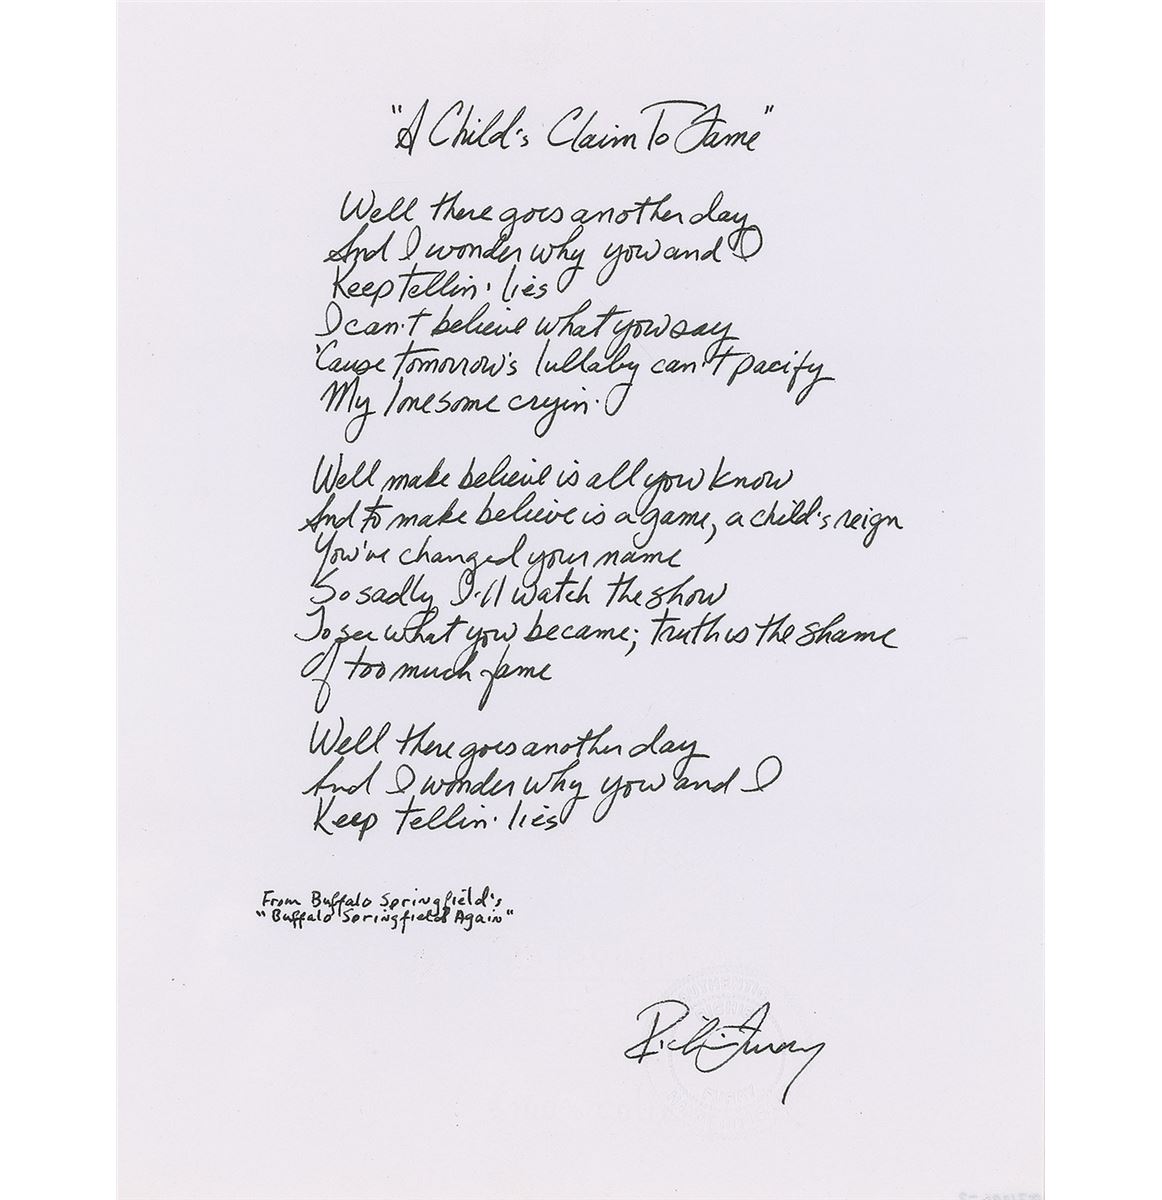 "A Child's Claim To Fame"
Well there goes another day
And I wonder why you and I
Keep tellin' lies
I can't believe what you say
'Cause tomorrow's lullaby can't pacify
My lonesome cryin'
Well make believe is all you know
And to make believe is a game, a child's reign
You've changed your name
So sadly I'll watch the show
To see what you became; truth is the shame
Of too much fame
Well there goes another day
And I wonder why you and I
Keep tellin' lies
From Buffalo Springfield's
"Buffalo Springfield Again"
Richie Furay